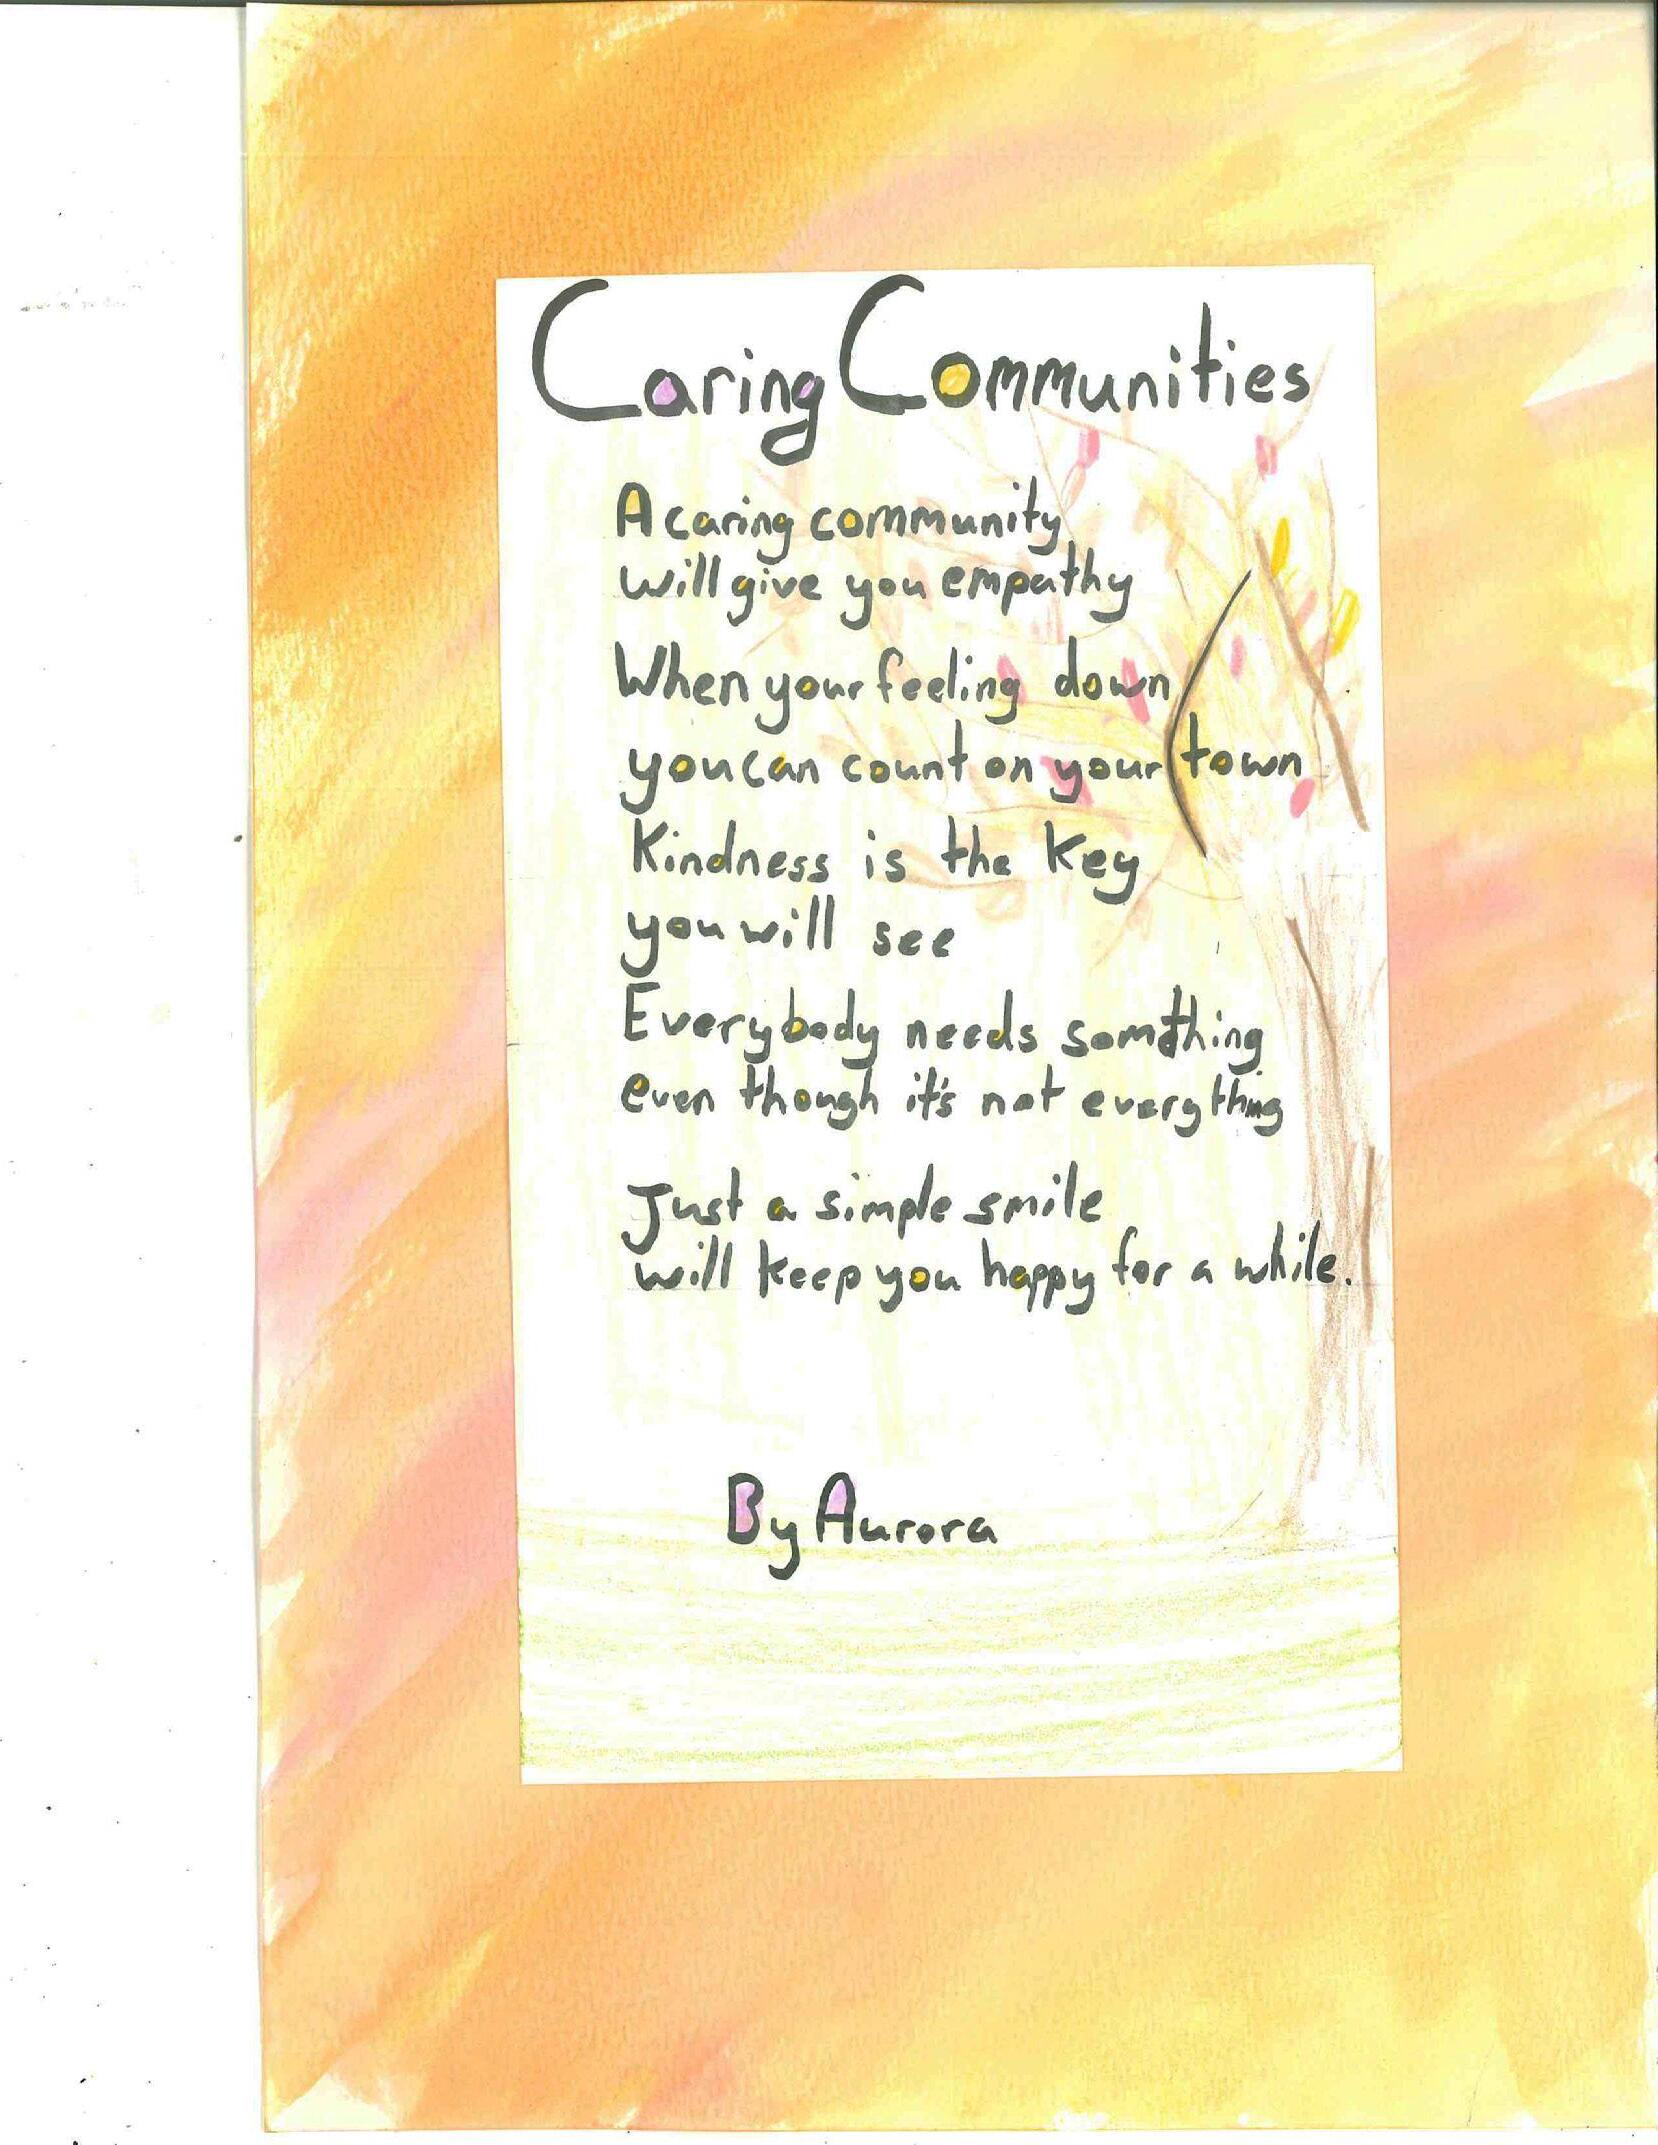 Caring Communities
A caring community
will give you empathy
When your feeling down
you can count on your town
Kindness is the key
you will see
Everybody needs somthing
even though it's not everything
Just a simple smile
will keep you happy for a while.
By Aurora